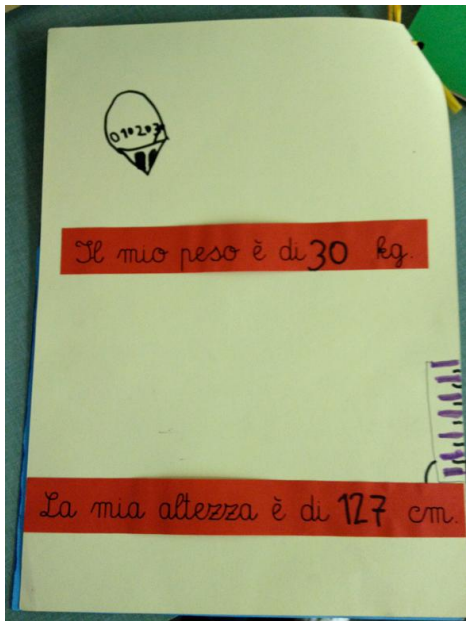 0 10 20 3
Il mio peso è di 30 kg.
La mia altezza è di 127 cm.